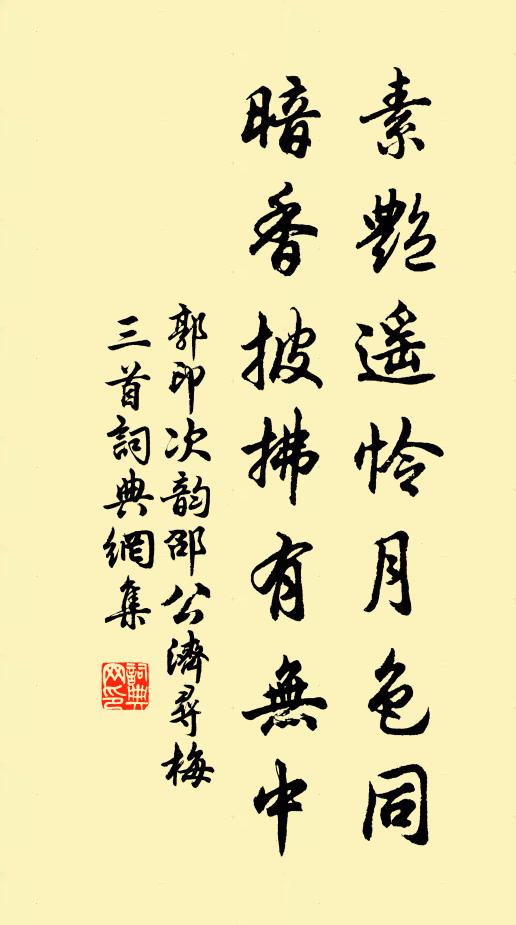 素艷遥怜月色同
暗香披拂有無中
郭印次韵邵公濟尋梅
三首詞典網集
詞典网印